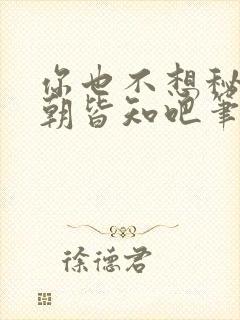 你也不想秘
朝皆知吧笔
徐德君